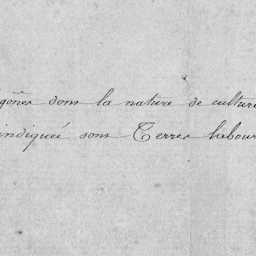 dont la nature de culture
indiquée sous Terres labour